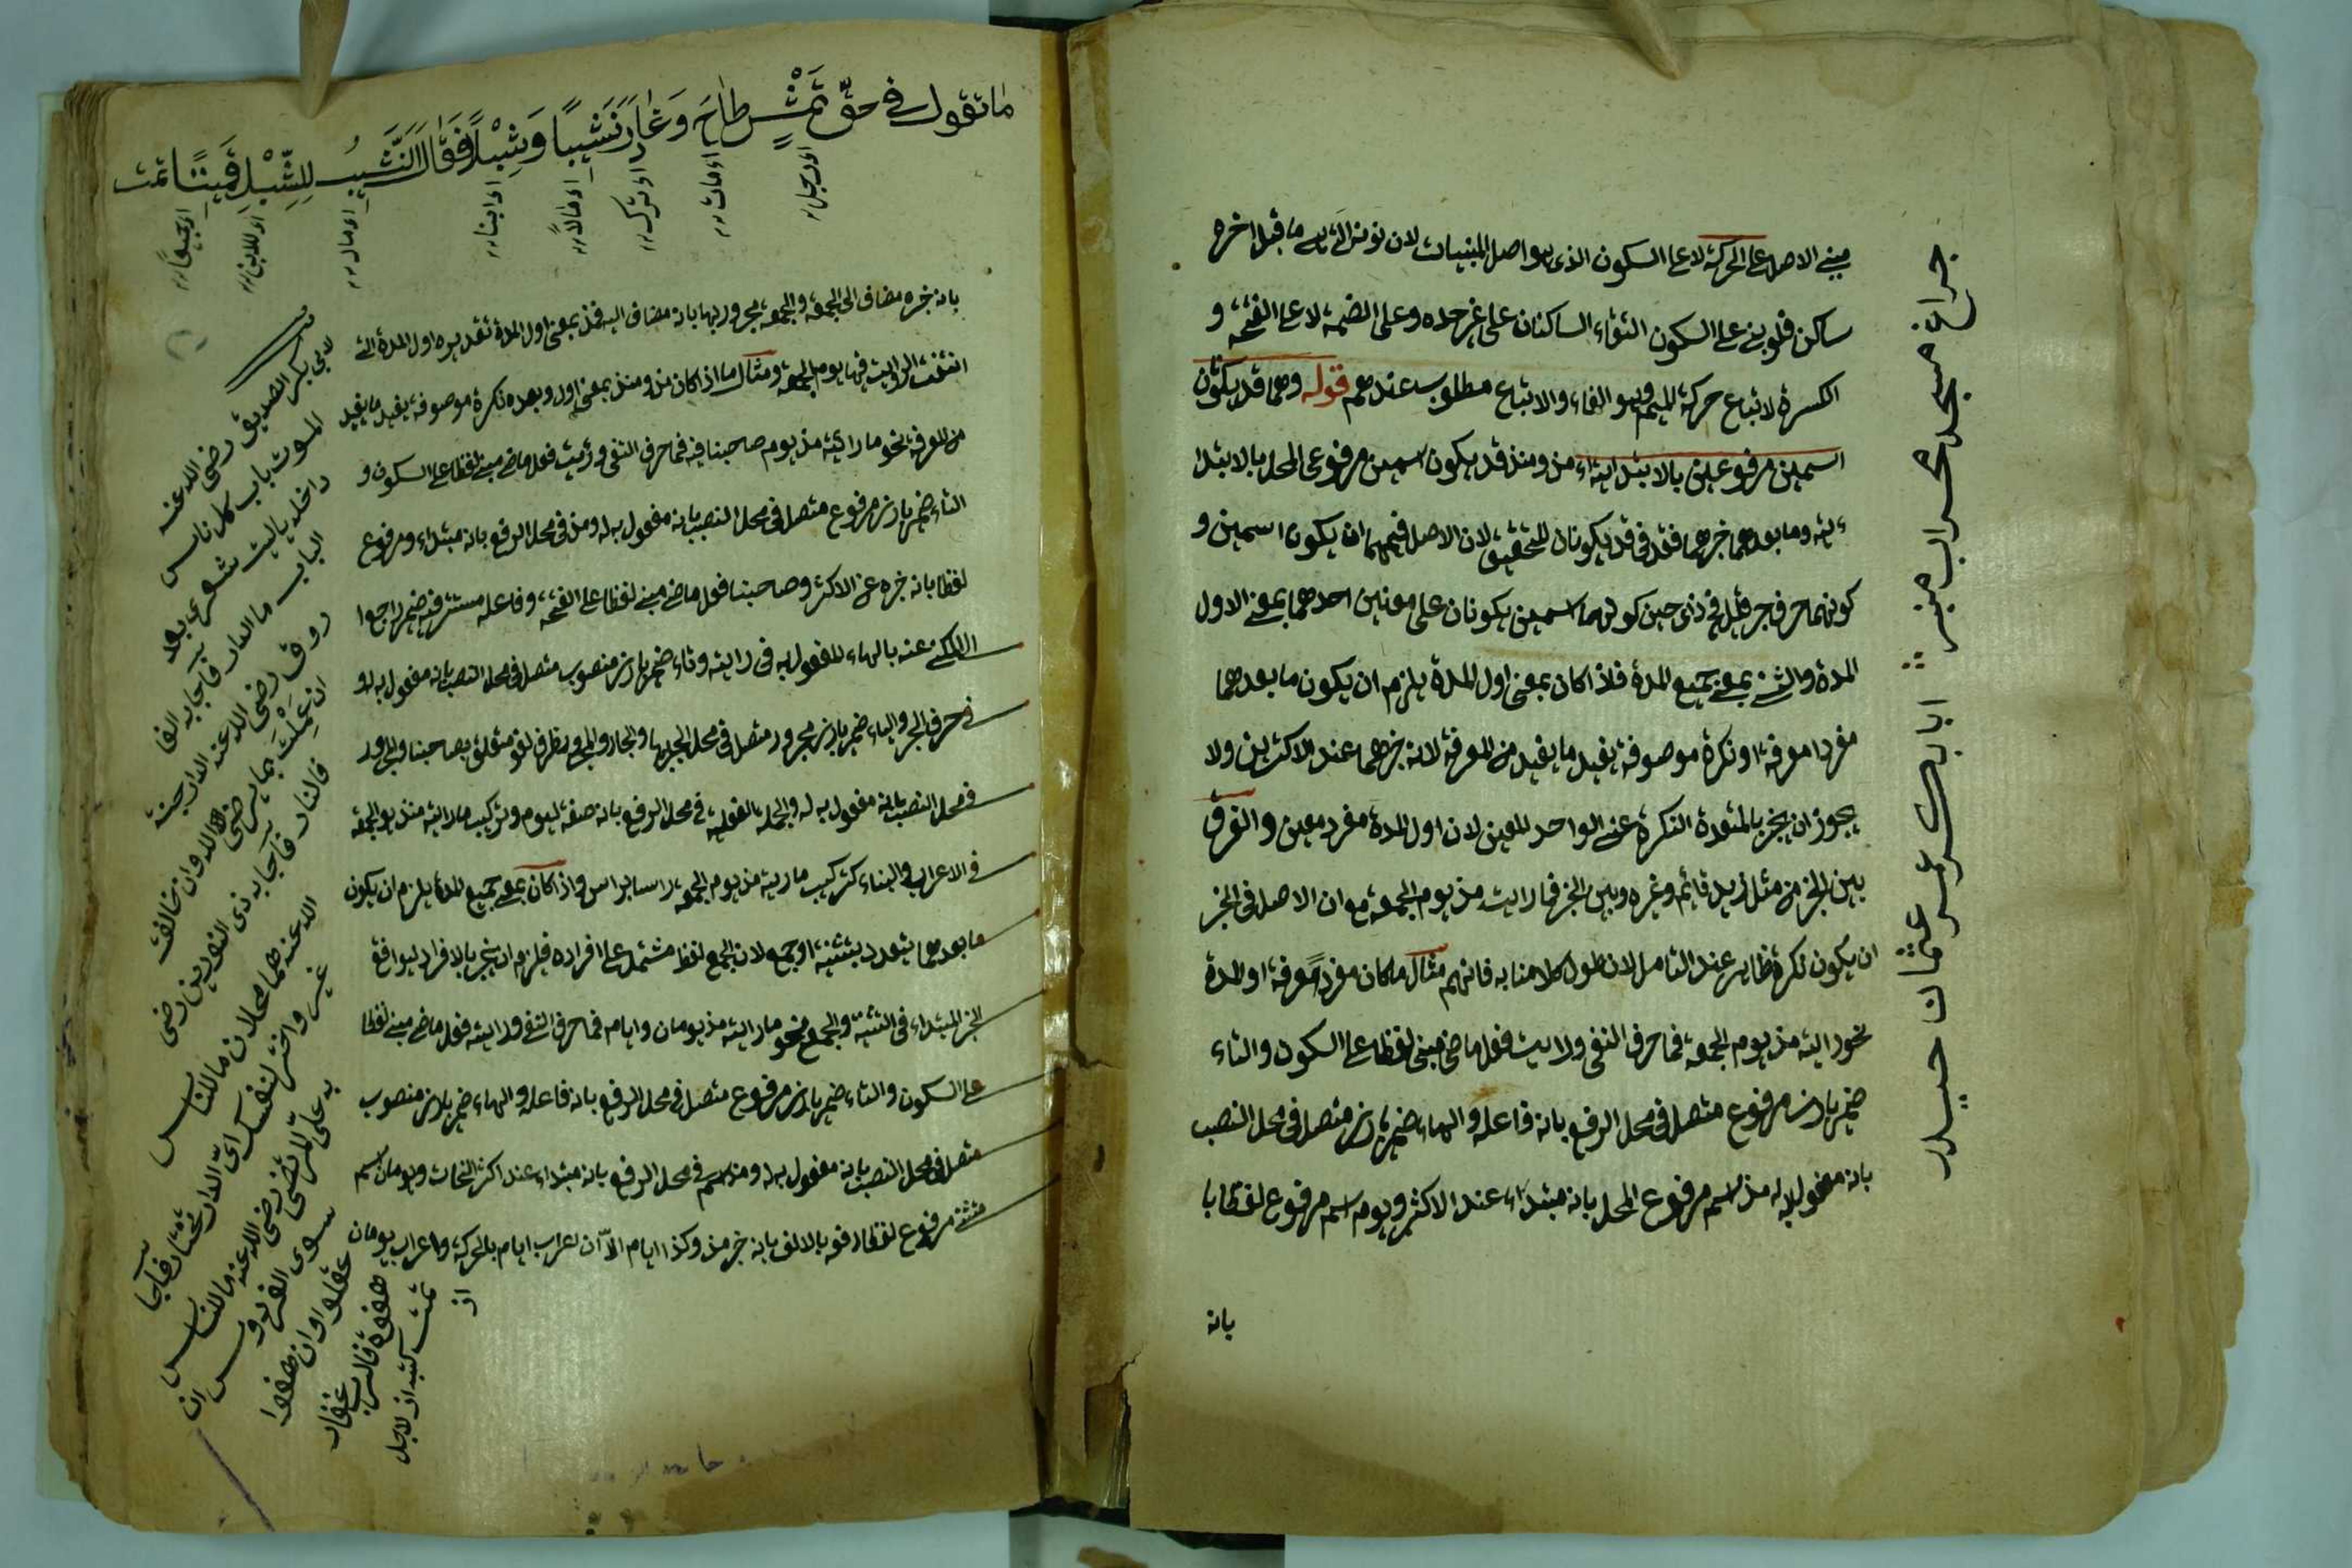 مبني الاصل على الحركة لا على السكون الذى هو اصل المبنيات لان ما قبل اخره
ساكن فلو بني على السكون التقاء الساكنان على غير حده وعلى الضمة لا على الفتحة و
الكسرة لاتباع حركة الميم وهو الفاء والاتباع مطلوب عندهم قوله وهما قد يكونان
اسمين مرفوعين بالابتداء مذ ومنذ قد يكون اسمين مرفوعى المحل بالابتدا
ئية وما بعدهما خبرهما فقد فى قد يكونان للتحقيق لان الاصل فيهما ان يكون اسمين و
كونهما حرف جر قليل فى حين كونهما اسمين يكونان على معنين احدهما بمعنى الاول
المدة والثاني بمعنى جميع المدة فاذا كان بمعنى اول المدة يلزم ان يكون ما بعدهما
مفردا معرفة او نكرة موصوفة يفيد ما يفيد من المعرفة لانه خبرهما عند الاكثرين ولا
يجوز ان يخبر بالمتعددة النكرة عن الواحد المعين لان اول المدة مفرد معين والفرق
بين الخبر من مثل زيد قائم وغيره وبين الخبر فى ما رايت مذ يوم الجمعة مع ان الاصل فى الخبر
ان يكون نكرة ظاهر عند التامل لان طول كلامنا به فافهم مثال ما كان مفردا معرفة او المدة
نحو رايته مذ يوم الجمعة فما حرف النفى ورايت فعل ماضى مبنى لفظا على السكون والتاء
ضمير بارز مرفوع متصل فى محل الرفع بانه فاعله والهاء ضمير بارز متصل فى محل النصب
بانه مفعول به له مذ اسم مرفوع المحل بانه مبتداء عند الاكثر ويوم اسم مرفوع لفظا با
بانه
چراغ مسجد محراب منبر
ابابكر عمر عثمان حيدر
ما تقول فى حقّ تمشٍ طاح وغادر نشبًا وشبلًا فقال النشب للشبل قمينًا تمت
اى رجل
اى مات
اى ترك
اى مالاً
اى ابنا
اى مال
اى للابن
بانه خبره مضاف الى الجمعة والجمعة مجرور بها بانه مضاف اليه فمذ بمعنى اول المدة تقديره اول المدة التى
انتفت الرؤيت فيها يوم الجمعة ومثال ما اذا كان مذ ومنذ بمعنى اول وبعده نكرة موصوفة يفيد ما يفيد
من المعرفة نحو ما رايته مذ يوم صاحبنا فيه فما حرف النفى ورئيت فعل ماضى مبني لفظا على السكون و
التاء ضمير بارز مرفوع متصل فى محل النصب بانه مفعول به له ومذ فى محل الرفع بانه مبتداء ومرفوع
لفظا بانه خبره عن الاكثر وصاحبنا فعل ماضى مبنى لفظا على الفتحة وفاعله مستتر فيه ضمير راجعا
عنه بالهاء للمفعول به فى رايته وناء ضمير بارز منصوب متصل فى محل النصب بانه مفعول به له و
فى حرف الجر والهاء ضمير بارز مجرور متصل فى محل الجر بها والجار والمجرور ظرف لغو متعلق بصاحبنا والمجرور
فى محل النصب بانه مفعول به له والجملة الفعلية فى محل الرفع بانه صفة ليوم وتركيب ما رايته منذ يوم الجمعة
فى الاعراب والبناء كتركيب ما رايته مذ يوم الجمعة راسا براس واذا كان بمعنى جميع المدة يلزم ان يكون
ما بعدهما بتعدد بتثنية او جمع لان الجمع لفظ مشتمل على افراده فلزم ان يخبر بالافراد ليوافق
الخبر المبتداء فى التثنية والجمع نحو ما رايته مذ يومان وايام فما حرف النفى ورايته فعل ماضى مبنى لفظا
على السكون والتاء ضمير بارز مرفوع متصل فى محل الرفع بانه فاعله والهاء ضمير بارز منصوب
متصل فى محل النصب بانه مفعول به له ومذ اسم فى محل الرفع بانه مبتداء عند اكثر النحات ويومان اسم
تثنية مرفوع لفظا رفعه بالالف بانه خبر مذ وكذا ايام الّا ان اعراب ايام بالحركة واعراب يومان
لابى بكر الصديق رضى الله عنه
الموت باب كل ناس
داخله ياليت شعرى بعد
الباب ما الدار فاجابه الفا
روق رضى الله عنه الدار جنة
ان عملت بما يرضى الاله وان خالفت
فالنار فاجابه ذى النورين رضى
الله عنه هما محلان ما للناس
غير واختر لنفسك اىّ الدار تختار فاجا
به على المرتضى رضى الله عنه ما للناس
سوى الفردوس ان
عقلوا وان هفوا
هفوة فالرب غفار
تمت